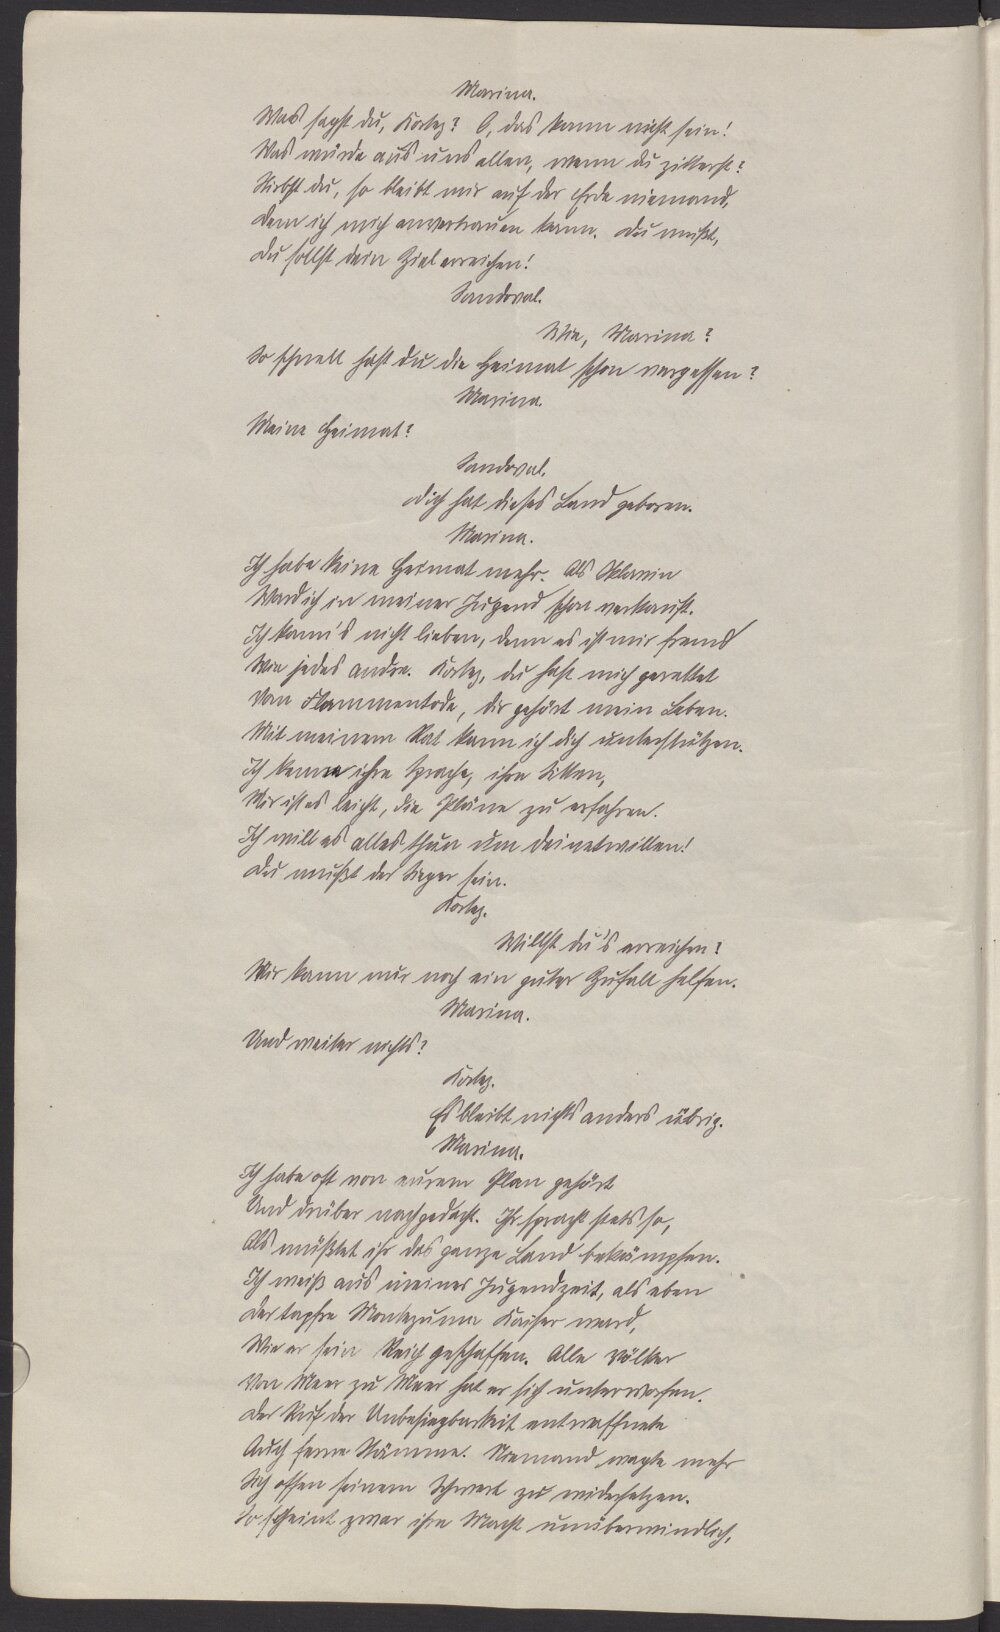 Marina.
Was sagst du, Kortez? O, das kann nicht sein!
Was würde aus uns allen, wenn du zitterst?
Stirbst du, so bleibt mir auf der Erde niemand,
Dem ich mich anvertrauen kann. Du mußt,
Du sollst dein Ziel erreichen!
Sandoval.
Wie, Marina?
So schnell hast du die Heimat schon vergessen?
Marina.
Meine Heimat?
Sandoval.
Dich hat dieses Land geboren.
Marina.
Ich habe keine Heimat mehr. Als Sklavin
Ward ich in meiner Jugend schon verkauft.
Ich kann's nicht lieben, denn es ist mir fremd
Wie jedes andre. Kortez, du hast mich gerettet
Vom Flammentode, dir gehört mein Leben.
Mit meinem Rat kann ich dich unterstützen.
Ich kenne ihre Sprache, ihre Sitten,
Mir ist es leicht, die Pläne zu erfahren.
Ich will es alles thun um deinetwillen!
Du mußt der Sieger sein.
Kortez.
Willst du's erreichen?
Mir kann nur noch ein guter Zufall helfen.
Marina.
Und weiter nichts?
Kortez.
Es bleibt nichts anders übrig.
Marina.
Ich habe oft von eurem Plan gehört
Und drüber nachgedacht. Ihr spracht stets so,
Als müßtet ihr das ganze Land bekämpfen.
Ich weiß aus meiner Jugendzeit, als eben
Der tapfre Montezuma Kaiser ward,
Wie er sein Reich geschaffen. Alle Völker
Von Meer zu Meer hat er sich unterworfen.
Der Ruf der Unbesiegbarkeit entwaffnete
Auch ferne Stämme. Niemand wagte mehr
Sich offen seinem Schwert zu widersetzen.
So scheint zwar ihre Macht unüberwindlich,